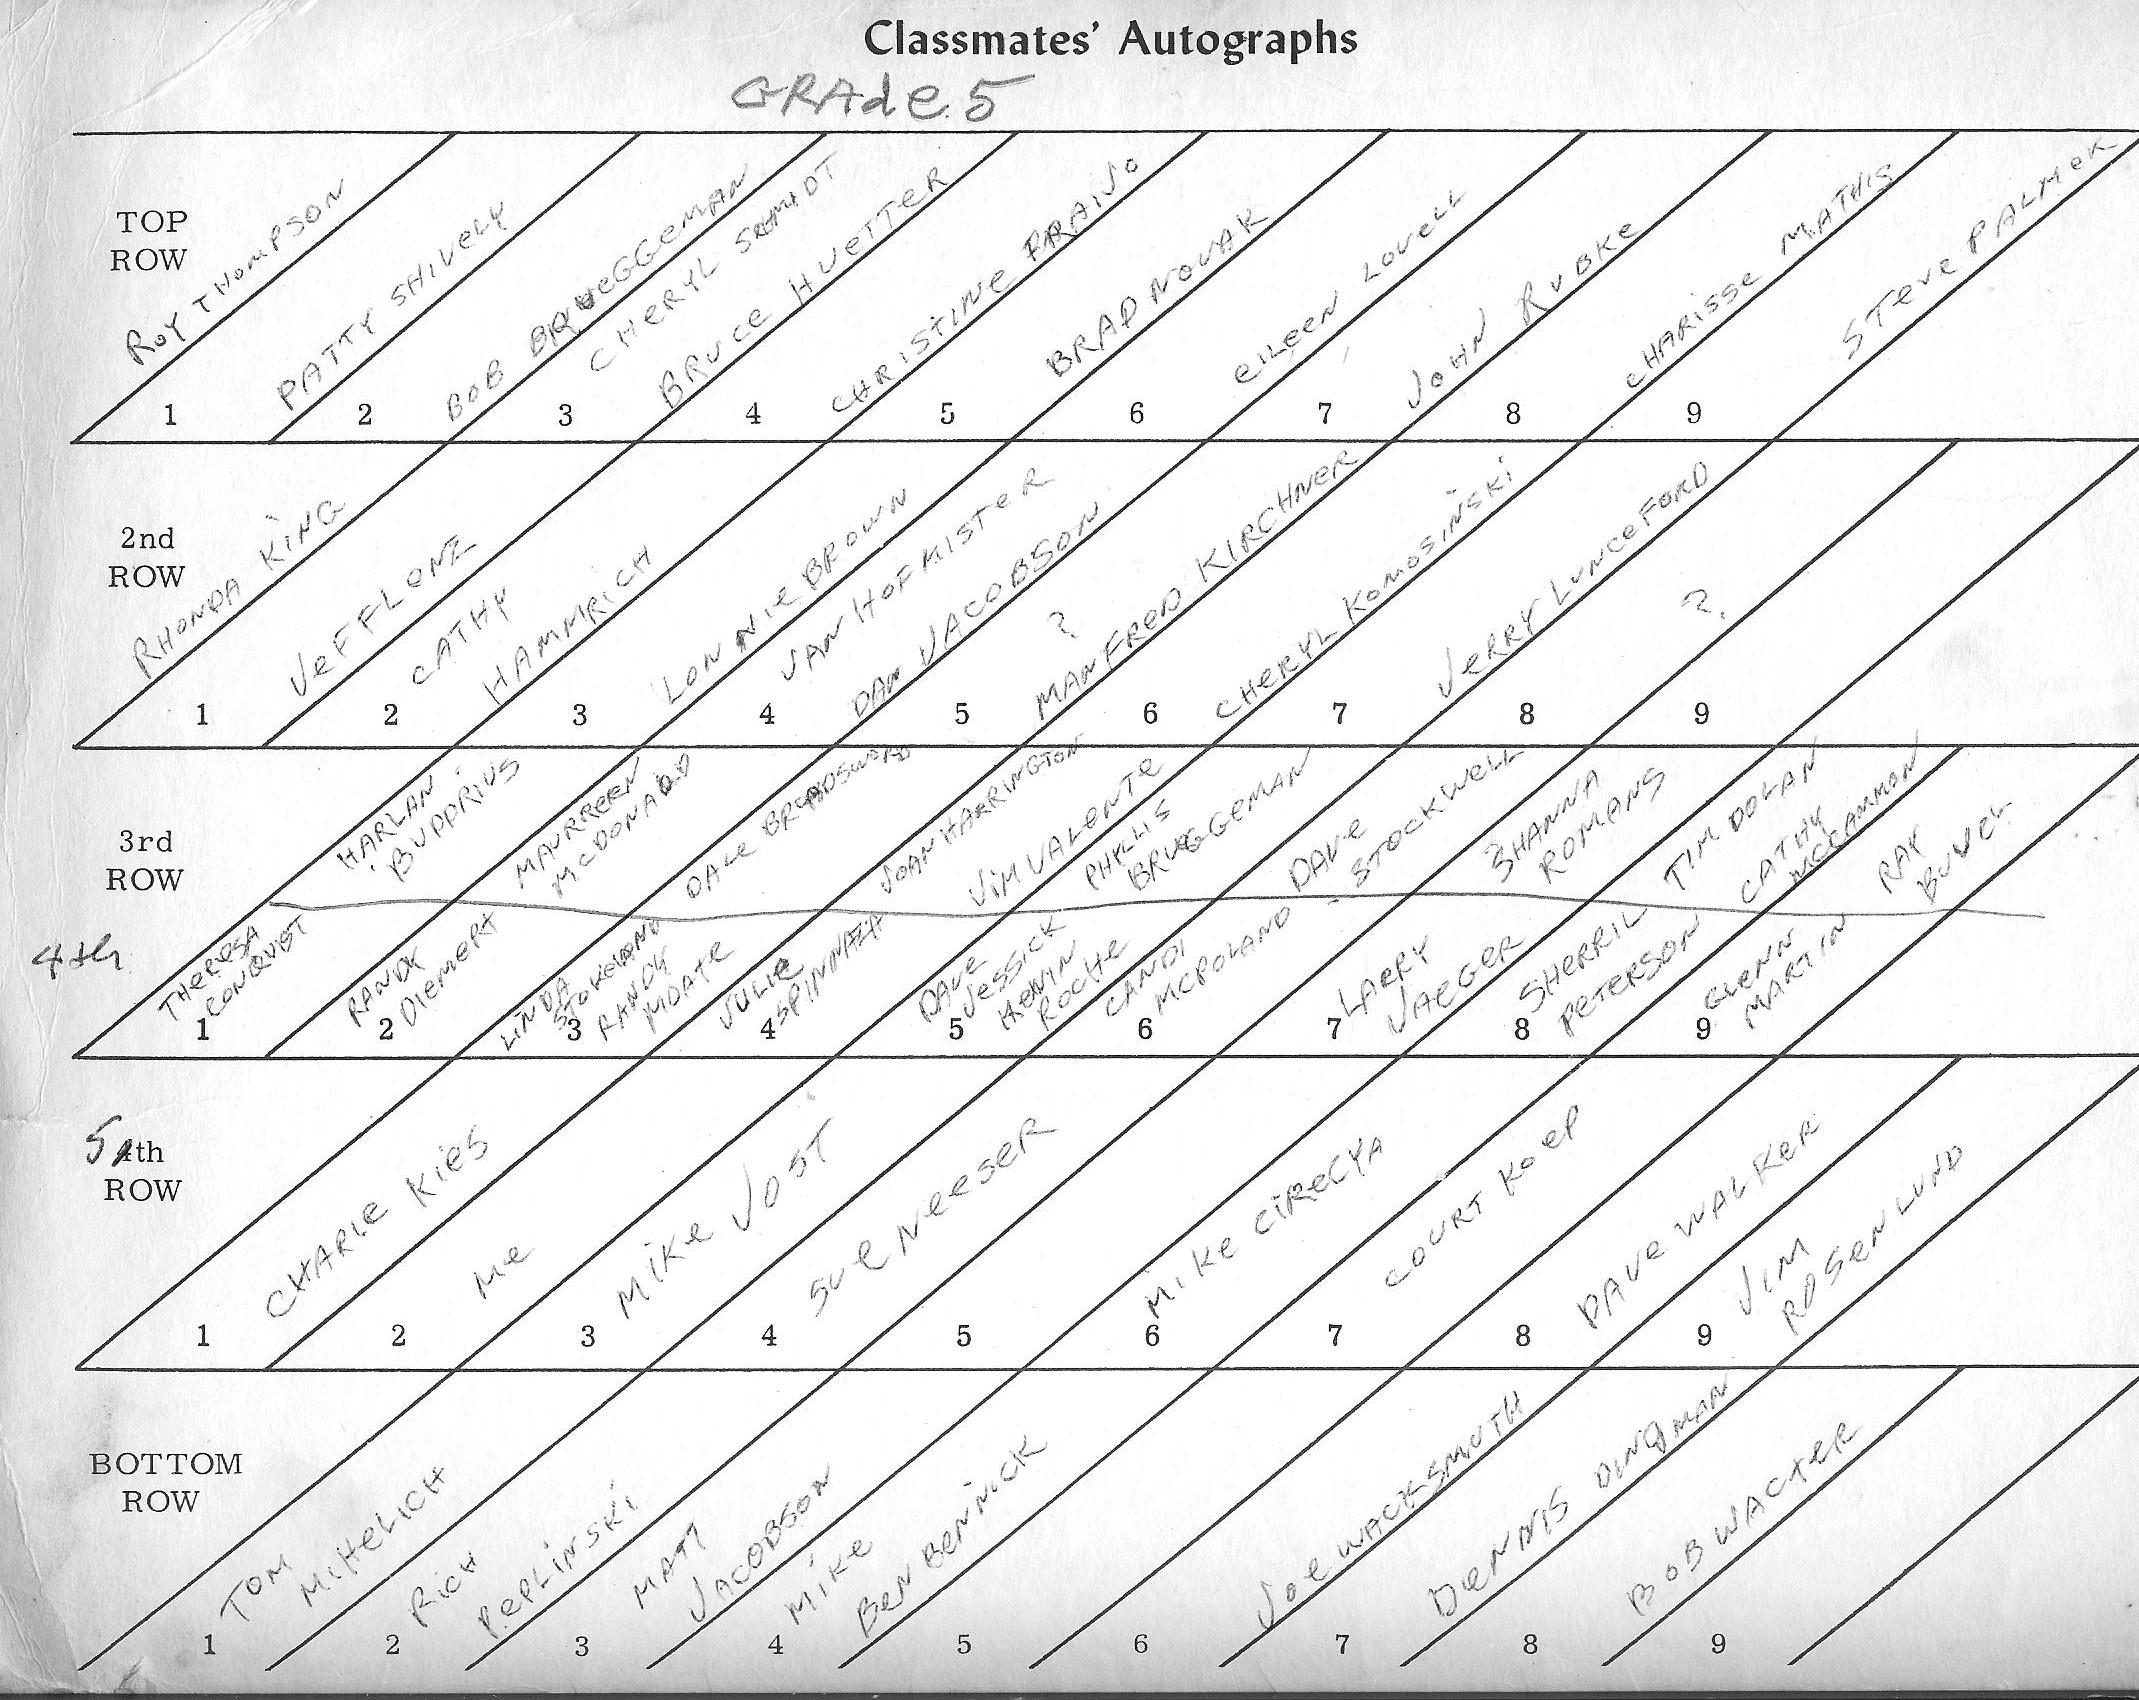 Classmates' Autographs
GRAde 5
TOP
ROW
ROY THOMPSON
PATTY SHIVELY
BOB BRUEGGEMAN
CHERYL SCHMIDT
BRUCE HUETTER
CHRISTINE PRAIVO
BRAD NOVAK
EILEEN LOVELL
JOHN RUBKE
CHARISSE MATHIS
STEVE PALMER
1 2 3 4 5 6 7 8 9
2nd
ROW
RHONDA KING
JEFF LENZ
CATHY
HAMMRICH
LONNIE BROWN
JAN HOFMISTER
DAN JACOBSON
?
MANFRED KIRCHNER
CHERYL KOMOSINSKI
JERRY LUNCEFORD
?
1 2 3 4 5 6 7 8 9
3rd
ROW
HARLAN
BUDDRIUS
MAURREEN
MCDONALD
DALE BROADSWORD
JOAN HARRINGTON
JIM VALENTE
PHYLLIS
BRUEGGEMAN
DAVE
STOCKWELL
SHANNA
ROMANS
TIM DOLAN
CATHY
MCCAMMAN
RAY
BUVEL
4th
THERESA
CONQUIST
RANDY
DIEMERT
LINDA
STOKELAND
RANDY
MDATE
JULIE
SPINNAZA
DAVE
JESSICK
KEVIN
ROCHE
CANDI
MCPOLAND
LARRY
JAEGER
SHERRIL
PETERSON
GLENN
MARTIN
1 2 3 4 5 6 7 8 9
5th
ROW
CHARLE KIES
ME
MIKE JOST
SUE NEESER
MIKE CIRECYA
COURT KOEP
DAVE WALKER
JIM
ROSENLUND
1 2 3 4 5 6 7 8 9
BOTTOM
ROW
TOM
MIHELICH
RICH
PEPLINSKI
MATT
JACOBSON
MIKE
BEN BENNICK
JOE WACKSMUTH
DENNIS DINGMAN
BOB WACTER
1 2 3 4 5 6 7 8 9